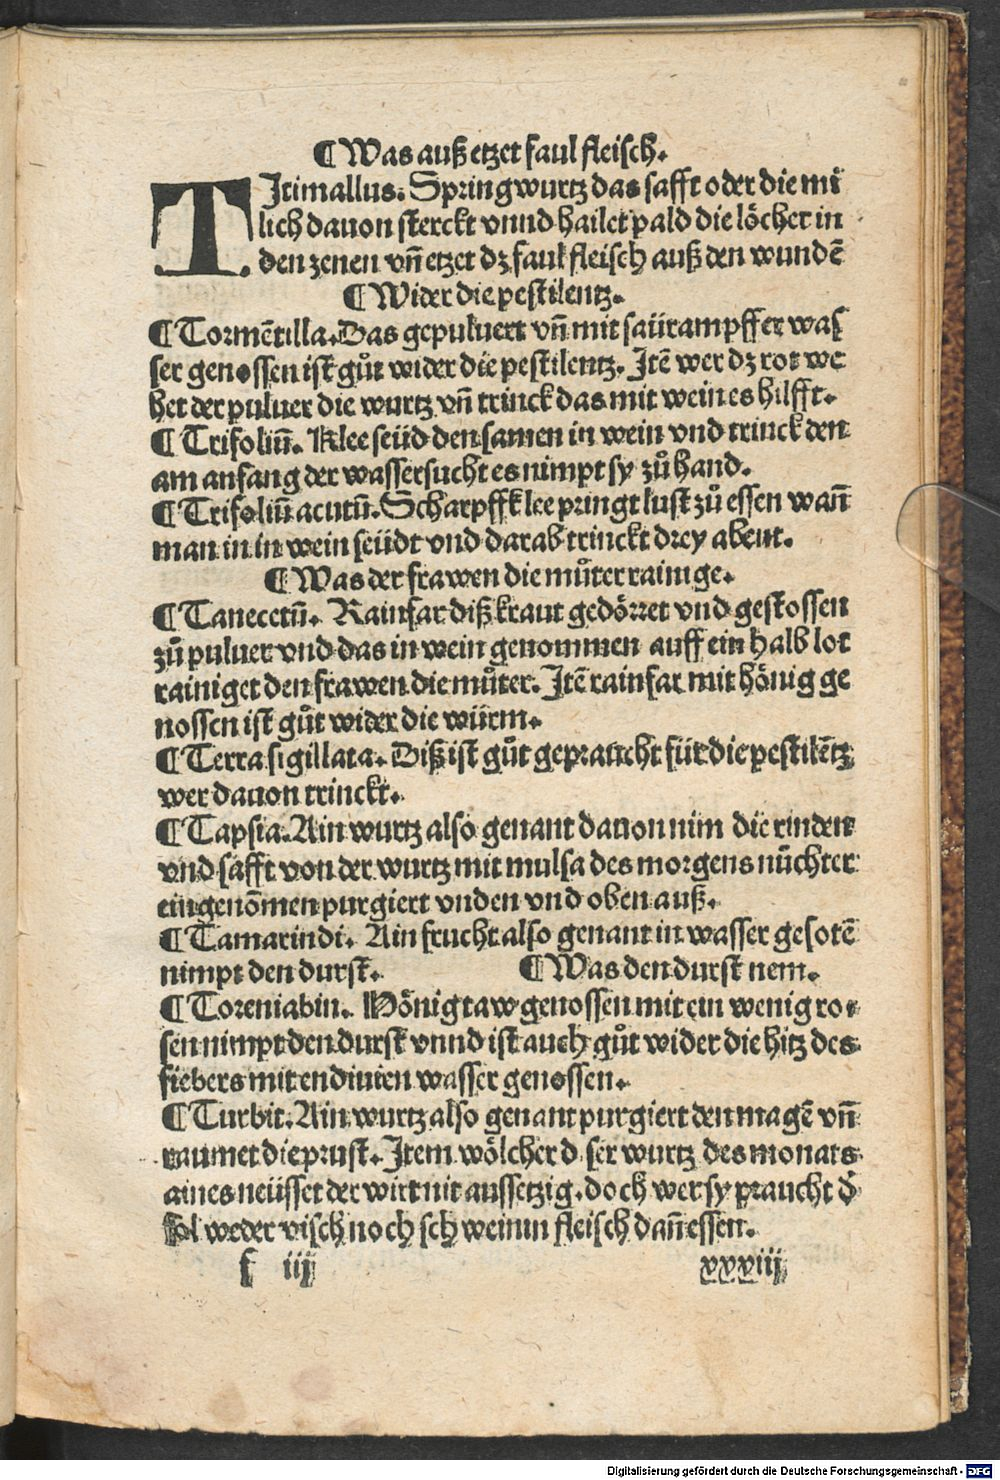 ¶ Was auß etzet faul fleisch.
TItimallus. Springwurtz das safft oder die mi
lich dauon sterckt vnnd hailet pald die löcher in
den zenen vñ etzet dz faul fleisch auß den wundē
¶ Wider die pestilentz.
¶ Tormētilla. Das gepuluert vñ mit saürampffer was
ser genossen ist gůt wider die pestilentz. Itē wer dz rot we
het der puluer die wurtz vñ trinck das mit wein es hilfft.
¶ Trifoliū. Klee seüd den samen in wein vnd trinck den
am anfang der wassersucht es nimpt sy zůhand.
¶ Trifoliū acutū. Scharpffklee pringt lust zů essen wañ
man in in wein seüdt vnd darab trinckt drey abent.
¶ Was der frawen die můter rainige.
¶ Tanecetū. Rainfar diß kraut gedörret vnd gestossen
zů puluer vnd das in wein genommen auff ein halb lot
rainiget den frawen die můter. Itē rainfar mit hönig ge
nossen ist gůt wider die würm.
¶ Terra sigillata. Diß ist gůt gepraucht für die pestilētz
wer dauon trinckt.
¶ Tapsia. Ain wurtz also genant dauon nim die rinden
vnd safft von der wurtz mit mulsa des morgens nüchter
eingenōmen purgiert vnden vnd oben auß.
¶ Tamarindi. Ain frucht also genant in wasser gesotē
nimpt den durst. ¶ Was den durst nem.
¶ Toreniabin. Hönigtaw genossen mit ein wenig ro-
sen nimpt den durst vnnd ist auch gůt wider die hitz des
fiebers mit endiuien wasser genossen.
¶ Turbit. Ain wurtz also genant purgiert den magē vñ
raumet die prust. Item wölcher d ser wurtz des monats
aines neüsset der wirt nit aussetzig. doch wer sy praucht d̓
sol weder visch noch schweinin fleisch dañ essen.
f iij xxxiij
Digitalisierung gefördert durch die Deutsche Forschungsgemeinschaft - DFG